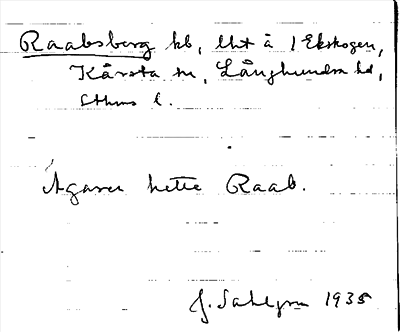 Raabsberg hb, lht å 1 Ekskogen,
Kårsta sn, Långhundra hd,
Sthms l.
Ägaren hette Raab.
J. Sahlgren 1935